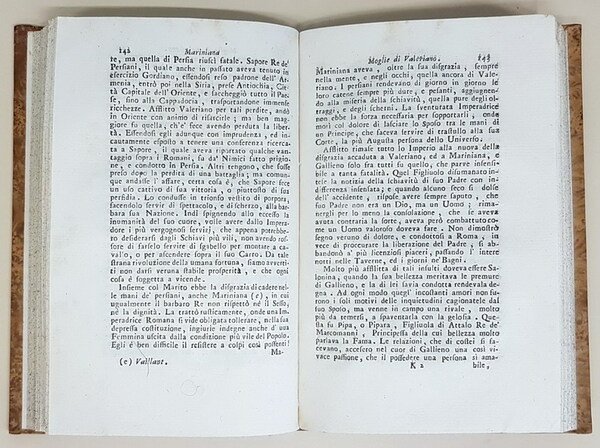 142 Mariniana
te, ma quella di Persia riuscì fatale. Sapore Re de'
Persiani, il quale anche in passato aveva tenuto in
esercizio Gordiano, essendosi reso padrone dell'Ar-
menia, entrò poi nella Siria, prese Antiochia, Cit-
tà Capitale dell'Oriente, e saccheggiò tutto il Pae-
se, sino alla Cappadocia, trasportandone immense
ricchezze. Afflitto Valeriano per tali perdite, andò
in Oriente con animo di risarcirle; ma ben mag-
giore fu quella, ch'e' fece avendo perduta la liber-
tà. Essendosi egli adunque con imprudenza, ed in-
cautamente esposto a tenere una conferenza ricerca-
ta a Sapore, il quale aveva riportato qualche van-
taggio sopra i Romani, fu da' Nimici fatto prigio-
ne, e condotto in Persia. Altri tengono, che fosse
preso dopo la perdita di una battaglia; ma comun-
que andasse l'affare, certa cosa è, che Sapore fece
un uso cattivo di sua vittoria, o piuttosto di sua
perfidia. Lo condusse in trionfo vestito di porpora,
facendolo servir di spettacolo, e di scherzo, alla bar-
bara sua Nazione. Indi spignendo all'eccesso la
inumanità del suo cuore, volle avere dallo Impera-
dore i più vergognosi servizj, che appena potrebbe-
ro desiderarsi dagli Schiavi più vili, non avendo ros-
sore di farselo servire di sgabello per montare a ca-
vallo, o per ascendere sopra il suo Carro. Da tale
strana rivoluzione della umana fortuna, siamo avverti-
ti non darsi veruna stabile prosperità, e che ogni
cosa è soggetta a vicende.
Insieme col Marito ebbe la disgrazia di cadere nel-
le mani de' persiani, anche Mariniana (e), in cui
ugualmente il barbaro Re non rispettò nè il Sesso,
nè la dignità. La trattò rusticamente, onde una Im-
peradrice Romana si vide obbligata tollerare, nella sua
depressa costituzione, ingiurie indegne anche d'una
Femmina uscita dalla condizione più vile del Popolo.
Egli è ben difficile il resistere a colpi così possenti!
Ma-
(e) Vaillant.
Moglie di Valeriano. 143
Mariniana aveva, oltre la sua disgrazia, sempre
nella mente, e negli occhi, quella ancora di Vale-
riano. I Persiani rendevano di giorno in giorno le
loro catene sempre più dure, e pesanti, aggiugnen-
do alla miseria della schiavitù, quella pure degli ol-
traggi, e degli scherni. La sventurata Imperadrice
non ebbe la forza necessaria per sopportarli, onde
morì col dolore di lasciare lo Sposo tra le mani di
un Principe, che faceva servire di trastullo alla sua
Corte, la più Augusta persona dello Universo.
Afflitto rimase tutto lo Imperio alla nuova della
disgrazia accaduta a Valeriano, ed a Mariniana, e
Gallieno solo fra tutti fu quello, che parve insensi-
bile a tanta fatalità. Quel Figliuolo disumanato in-
tese la notizia della schiavitù di suo Padre con in-
differenza insensata; e quando alcuno seco si dolse
dell'accidente, rispose avere sempre saputo, che
suo Padre non era un Dio, ma un Uomo; rima-
nergli per lo meno la consolazione, che se aveva
avuta contraria la sorte, aveva però combattuto co-
me un Uomo valoroso doveva fare. Non dimostrò
segno veruno di dolore, e condottosi a Roma, in
vece di procurare la liberazione del Padre, si ab-
bandonò a' più licenziosi piaceri, passando l'intere
notti nelle Taverne, ed i giorni ne' Bagni.
Molto più afflitta di tali insulti doveva essere Sa-
lonina, quando la sua bellezza meritava le premure
di Gallieno, e la di lei savia condotta rendevala de-
gna. Ad ogni modo quegl'incostanti amori non fu-
rono i soli motivi delle inquietudini cagionatele dal
suo Sposo, ma venne in campo una rivale, molto
più da temersi, a spaventarla con la gelosia. Que-
sta fu Pipa, o Pipara, Figliuola di Attalo Re de'
Marcomanni, Principessa della cui bellezza molto
parlava la Fama. Le relazioni, che di costei si fa-
cevano, accesero nel cuor di Gallieno una così vi-
vace passione, che il possedere una persona sì ama-
K 2 bile,